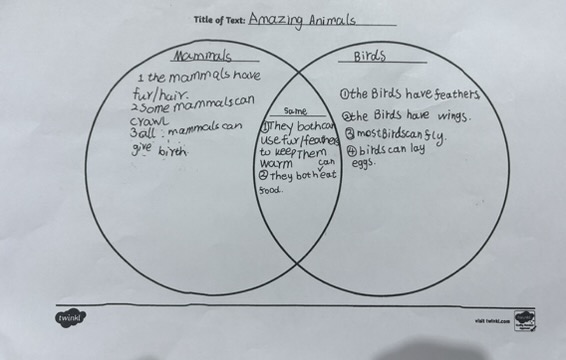 Title of Text: Amazing Animals
Mammals
1 the mammals have
fur/hair.
2 Some mammals can
crawl
3 all : mammals can
give birth
Same
① They both can
use fur/feathers
to keep Them
warm
② They both can eat
food.
Birds
① the Birds have feathers
② the Birds have wings.
③ most Birds can fly.
④ birds can lay
eggs.
twinkl
visit twinkl.com
twinkl